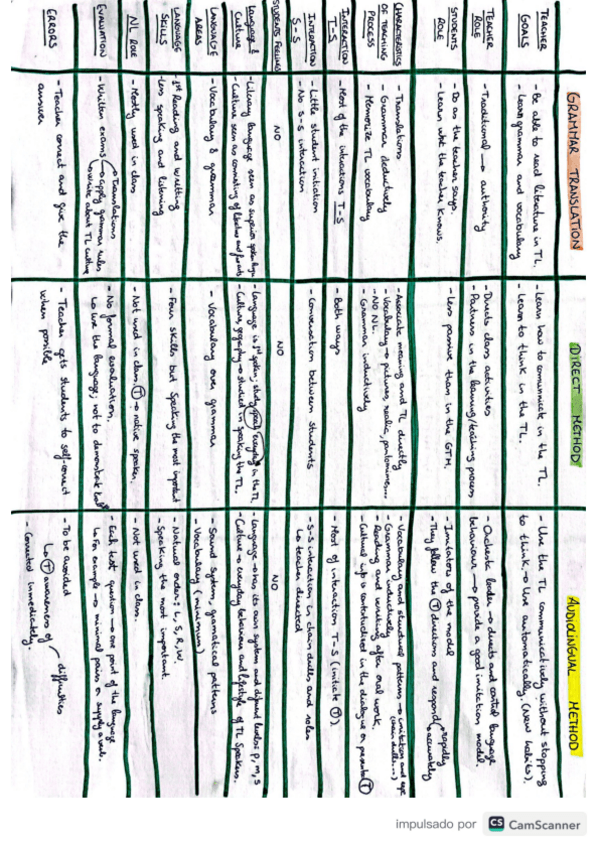 GRAMMAR TRANSLATION
DIRECT METHOD
AUDIOLINGUAL METHOD
TEACHER
GOALS
- Be able to read literature in TL.
- Learn grammar and vocabulary
- Learn how to communicate in the TL.
- Learn to think in the TL.
- Use the TL communicatively without stopping
to think → Use automatically. (New habits).
TEACHER
ROLE
- Traditional → authority
- Directs class activities
- Partners in the learning/teaching process
- Orchestra leader → directs and control language
behaviour → provide a good imitation model.
STUDENTS
ROLE
- Do as the teacher says.
- Learn what the teacher knows.
- Less passive than in the GTM.
- Imitators of the model
- They follow the T directions and respond rapidly
accurately
CHARACTERISTICS
OF TEACHING
PROCESS
- Translations
- Grammar deductively
- Memorize TL vocabulary
- Associate meaning and TL directly
- Vocabulary → pictures, realia, pantomime...
- NO NL.
- Grammar inductively
- Vocabulary and structural patterns → imitation and
- Grammar inductively
- Reading and writing after oral work.
- Cultural info contextualised in the dialogue or presents T
INTERACTION
T-S
- Most of the interactions T-S
- Both ways
- Most of interaction T-S (initiate T)
INTERACTION
S-S
- Little student initiation
- No S-S interaction
- Conversation between students
- S-S interaction in chain drills and roles
↳ teacher directed
STUDENTS FEELINGS
NO
NO
NO
Language &
Culture
- Literary language seen as superior
- Culture seen as consisting of
- Language is 1st spoken; study everyday in the TL
- Culture, geography → studied in speaking the TL.
- Language → has its own system and different levels: P, M, S
- Culture → everyday behaviour and lifestyle of TL speakers.
LANGUAGE
AREAS
- Vocabulary & grammar
- Vocabulary over grammar
- Sound system, gramatical patterns
- Vocabulary (minimum)
LANGUAGE
SKILLS
- 1st Reading and writting
- Less speaking and listening
- Four skills but speaking the most important
- Natural orden: L, S, R, W.
- Speaking the most important.
NL ROLE
- Mostly used in class
- Not used in class. T → native speaker.
- Not used in class.
EVALUATION
- Written exams → translations
→ apply grammar rules
→ write about TL culture
- No formal evaluation.
↳ to use the language; not to demonstrate
- Each test question → one point of the language
↳ for example → minimal pairs or supply a verb.
ERRORS
- Teacher correct and give the
answer
- Teacher gets students to self-correct
when possible
- To be avoided
↳ T awareness of difficulties
- Corrected immediately
impulsado por CS CamScanner